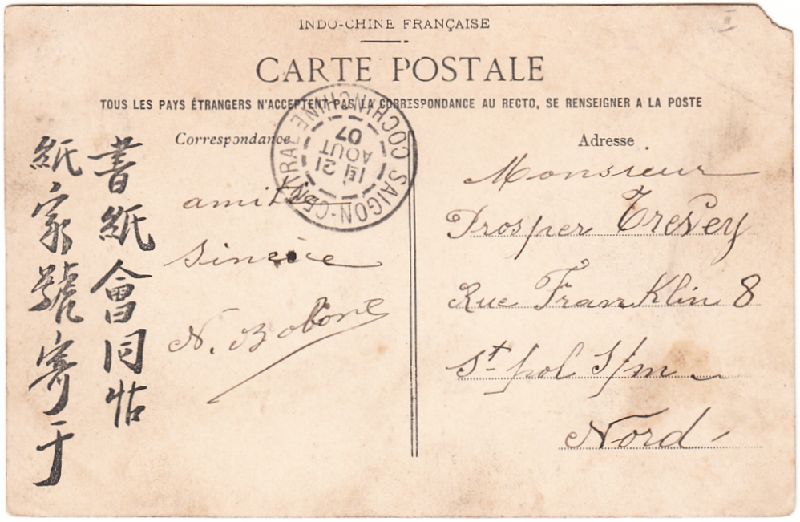 INDO-CHINE FRANÇAISE
CARTE POSTALE
TOUS LES PAYS ÉTRANGERS N'ACCEPTENT PAS LA CORRESPONDANCE AU RECTO, SE RENSEIGNER A LA POSTE
Correspondance
Adresse
SAIGON-CENTRAL COCHINCHINE
21
AOUT
07
amitié
sincère
Monsieur
Prosper Trevey
Rue Franklin 8
St pol s/m
Nord
書紙會同帖
紙家號寄于